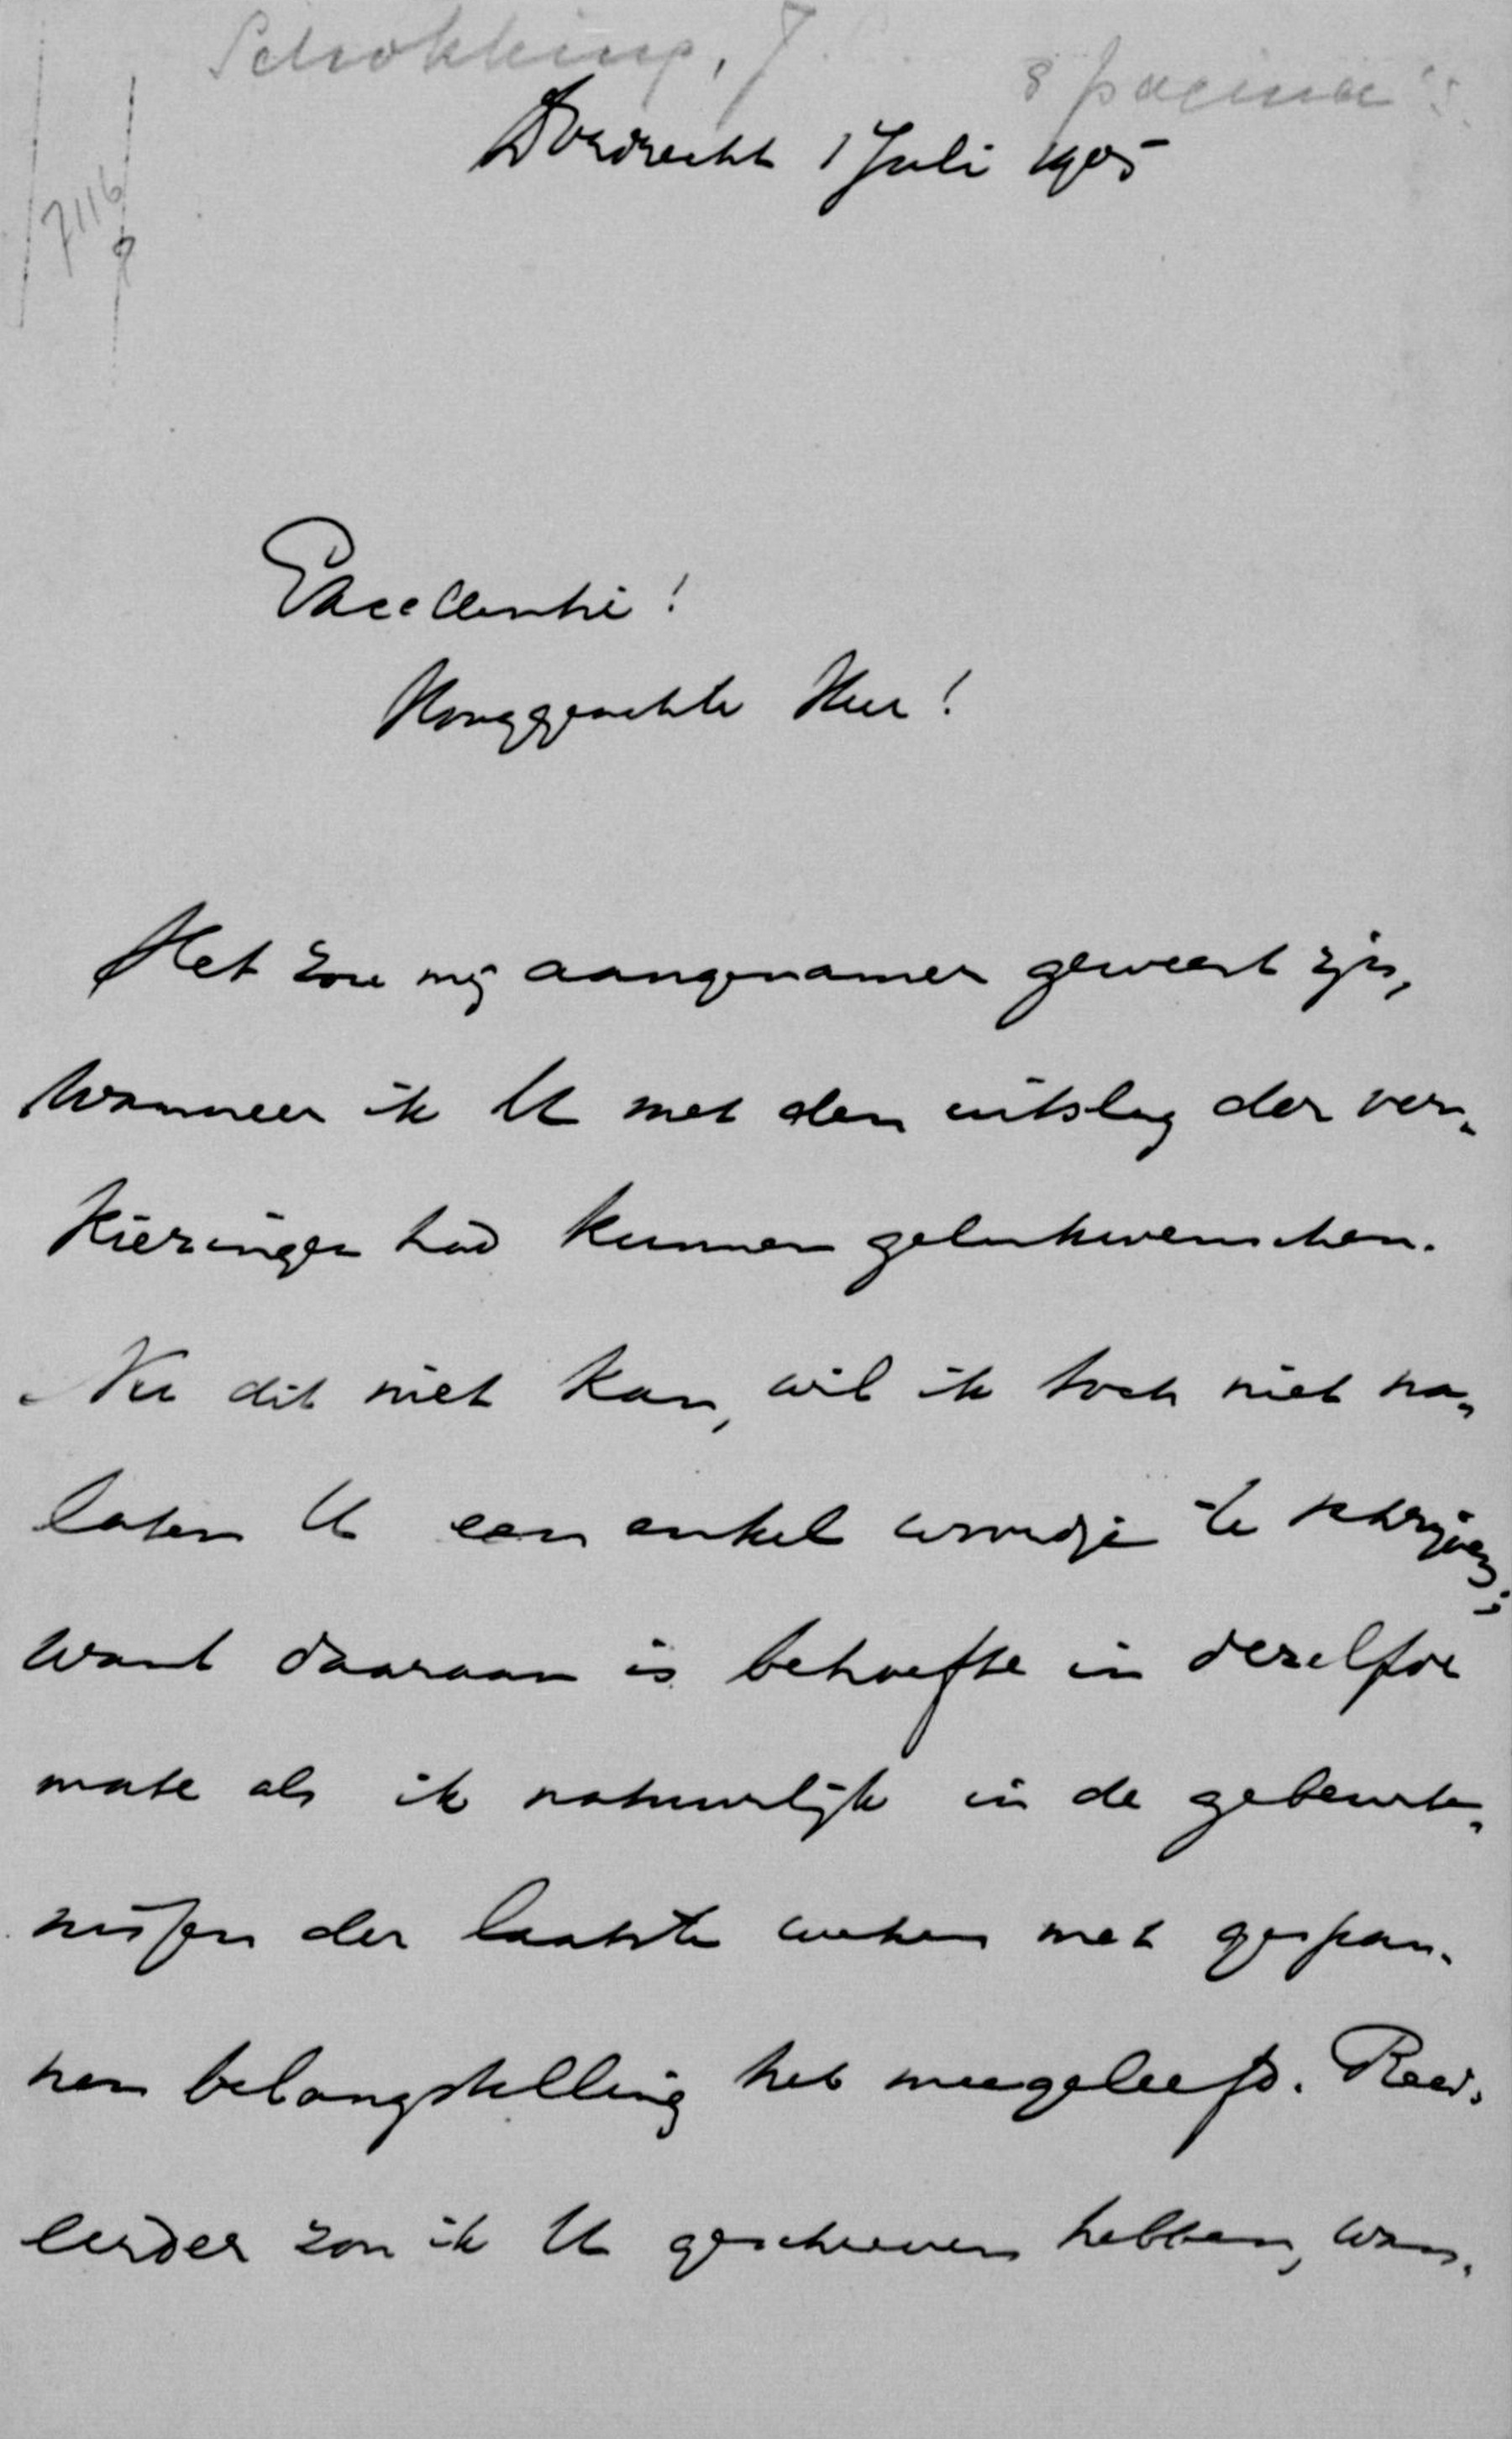 Schokking, J.
8 pagina's
7116
Dordrecht 1 Juli 1905
Excellentie!
Hooggeachte Heer!
Het zou mij aangenamer geweest zijn,
wanneer ik U met den uitslag der ver-
kiezingen had kunnen gelukwenschen.
Nu dit niet kan, wil ik toch niet na-
laten U een enkel woordje te schrijven;
want daaraan is behoefte in dezelfde
mate als ik natuurlijk in de gebeurte-
nissen der laatste weken met gespan-
nen belangstelling heb meegeleefd. Reeds
eerder zou ik U geschreven hebben, wan-